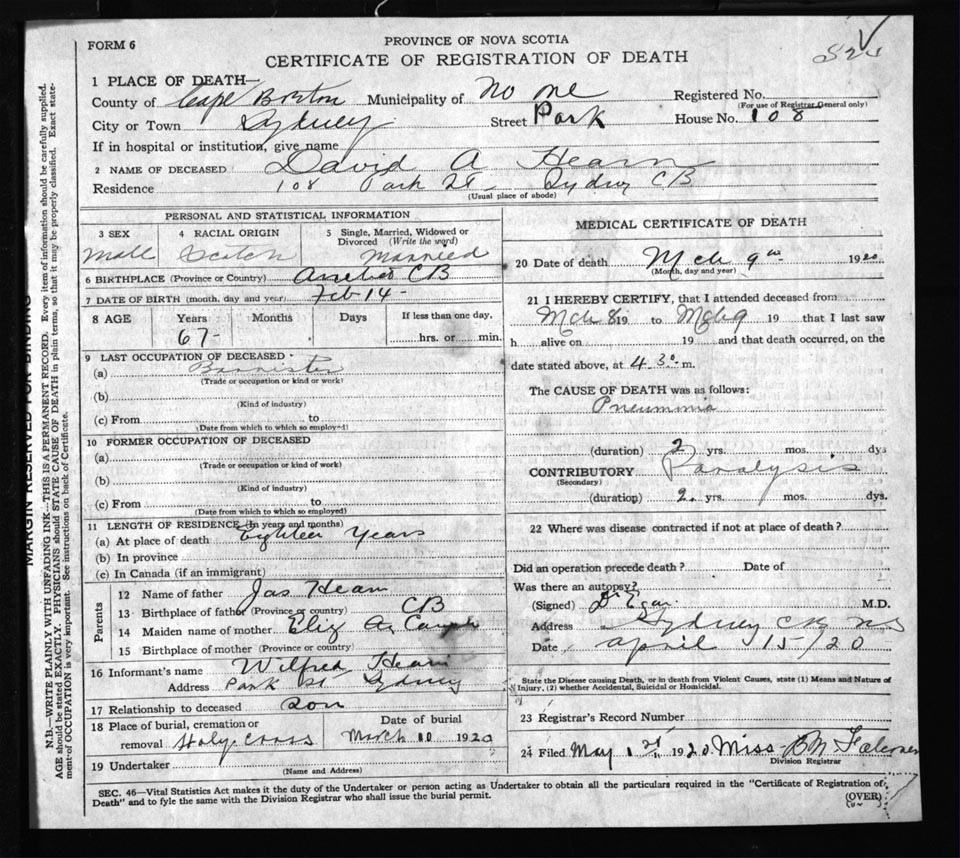 FORM 6
PROVINCE OF NOVA SCOTIA
CERTIFICATE OF REGISTRATION OF DEATH
1 PLACE OF DEATH—
County of Cape Breton Municipality of no one Registered No.
(For use of Registrar General only)
City or Town Sydney Street Park House No. 108
If in hospital or institution, give name
2 NAME OF DECEASED David A Hearn
Residence 108 Park St Sydney CB
(Usual place of abode)
PERSONAL AND STATISTICAL INFORMATION
3 SEX 4 RACIAL ORIGIN 5 Single, Married, Widowed or Divorced (Write the word)
Male Scotch Married
6 BIRTHPLACE (Province or Country) CB
7 DATE OF BIRTH (month, day and year) Feb 14-
8 AGE Years Months Days If less than one day,
67- hrs. or min.
9 LAST OCCUPATION OF DECEASED
(a) Barrister
(Trade or occupation or kind or work)
(b)
(Kind of industry)
(c) From to
(Date from which to which so employed)
10 FORMER OCCUPATION OF DECEASED
(a)
(Trade or occupation or kind of work)
(b)
(Kind of industry)
(c) From to
(Date from which to which so employed)
11 LENGTH OF RESIDENCE (In years and months)
(a) At place of death Eighteen Years
(b) In province
(c) In Canada (if an immigrant)
Parents
12 Name of father Jas Hearn
13 Birthplace of father (Province or country) CB
14 Maiden name of mother Eliz
15 Birthplace of mother (Province or country)
16 Informant's name Wilfred Hearn
Address Park St Sydney
17 Relationship to deceased son
18 Place of burial, cremation or removal Holy Cross
Date of burial
March 10 1920
19 Undertaker
(Name and Address)
MEDICAL CERTIFICATE OF DEATH
20 Date of death Mch 9th 1920
(Month, day and year)
21 I HEREBY CERTIFY, that I attended deceased from
Mch 8 19 to Mch 9 19 that I last saw
h alive on 19 and that death occurred, on the
date stated above, at 4.30 m.
The CAUSE OF DEATH was as follows:
Pneumonia
(duration) 2 yrs. mos. dys
CONTRIBUTORY Paralysis
(Secondary)
(duration) 2. yrs. mos. dys.
22 Where was disease contracted if not at place of death?
Did an operation precede death? Date of
Was there an autopsy?
(Signed) Dr Egan M.D.
Address Sydney CB NS
Date April 15/20
State the Disease causing Death, or in death from Violent Causes, state (1) Means and Nature of
Injury, (2) whether Accidental, Suicidal or Homicidal.
23 Registrar's Record Number
24 Filed May 1st 1920 Miss
Division Registrar
SEC. 46—Vital Statistics Act makes it the duty of the Undertaker or person acting as Undertaker to obtain all the particulars required in the "Certificate of Registration of
Death" and to fyle the same with the Division Registrar who shall issue the burial permit.
(OVER)
MARGIN RESERVED FOR BINDING
N.B.—WRITE PLAINLY WITH UNFADING INK—THIS IS A PERMANENT RECORD. Every item of information should be carefully supplied.
AGE should be stated EXACTLY. PHYSICIANS should STATE CAUSE OF DEATH in plain terms, so that it may be properly classified. Exact statement of OCCUPATION is very important. See instructions on back of Certificate.